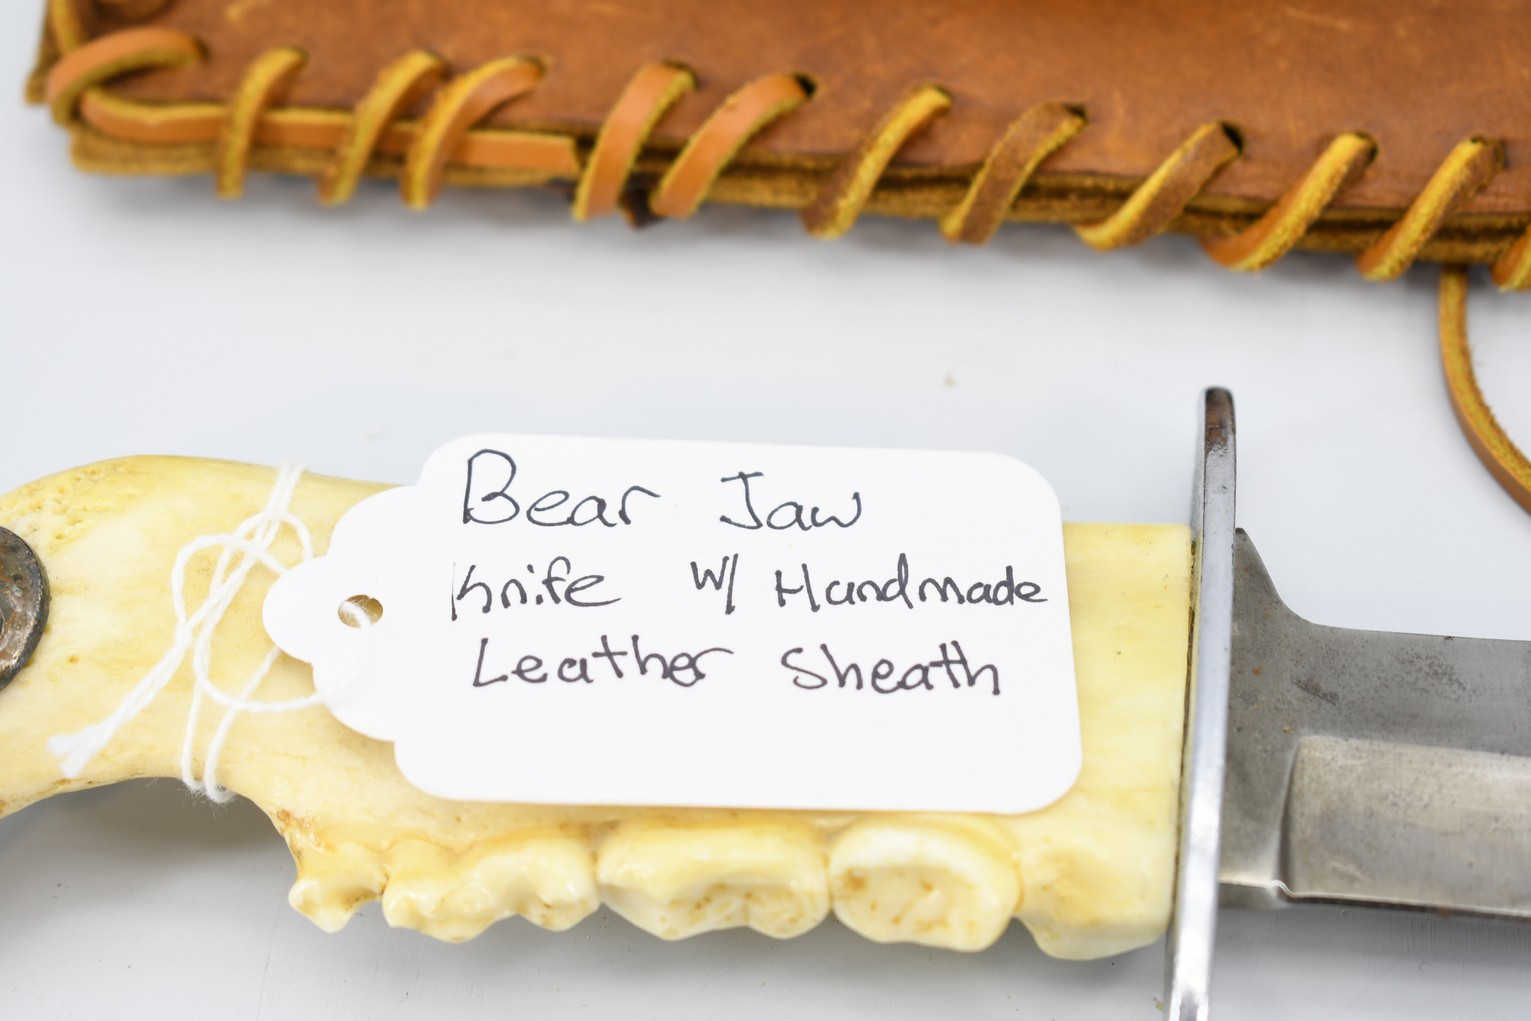 Bear Jaw
Knife w/ Handmade
Leather Sheath